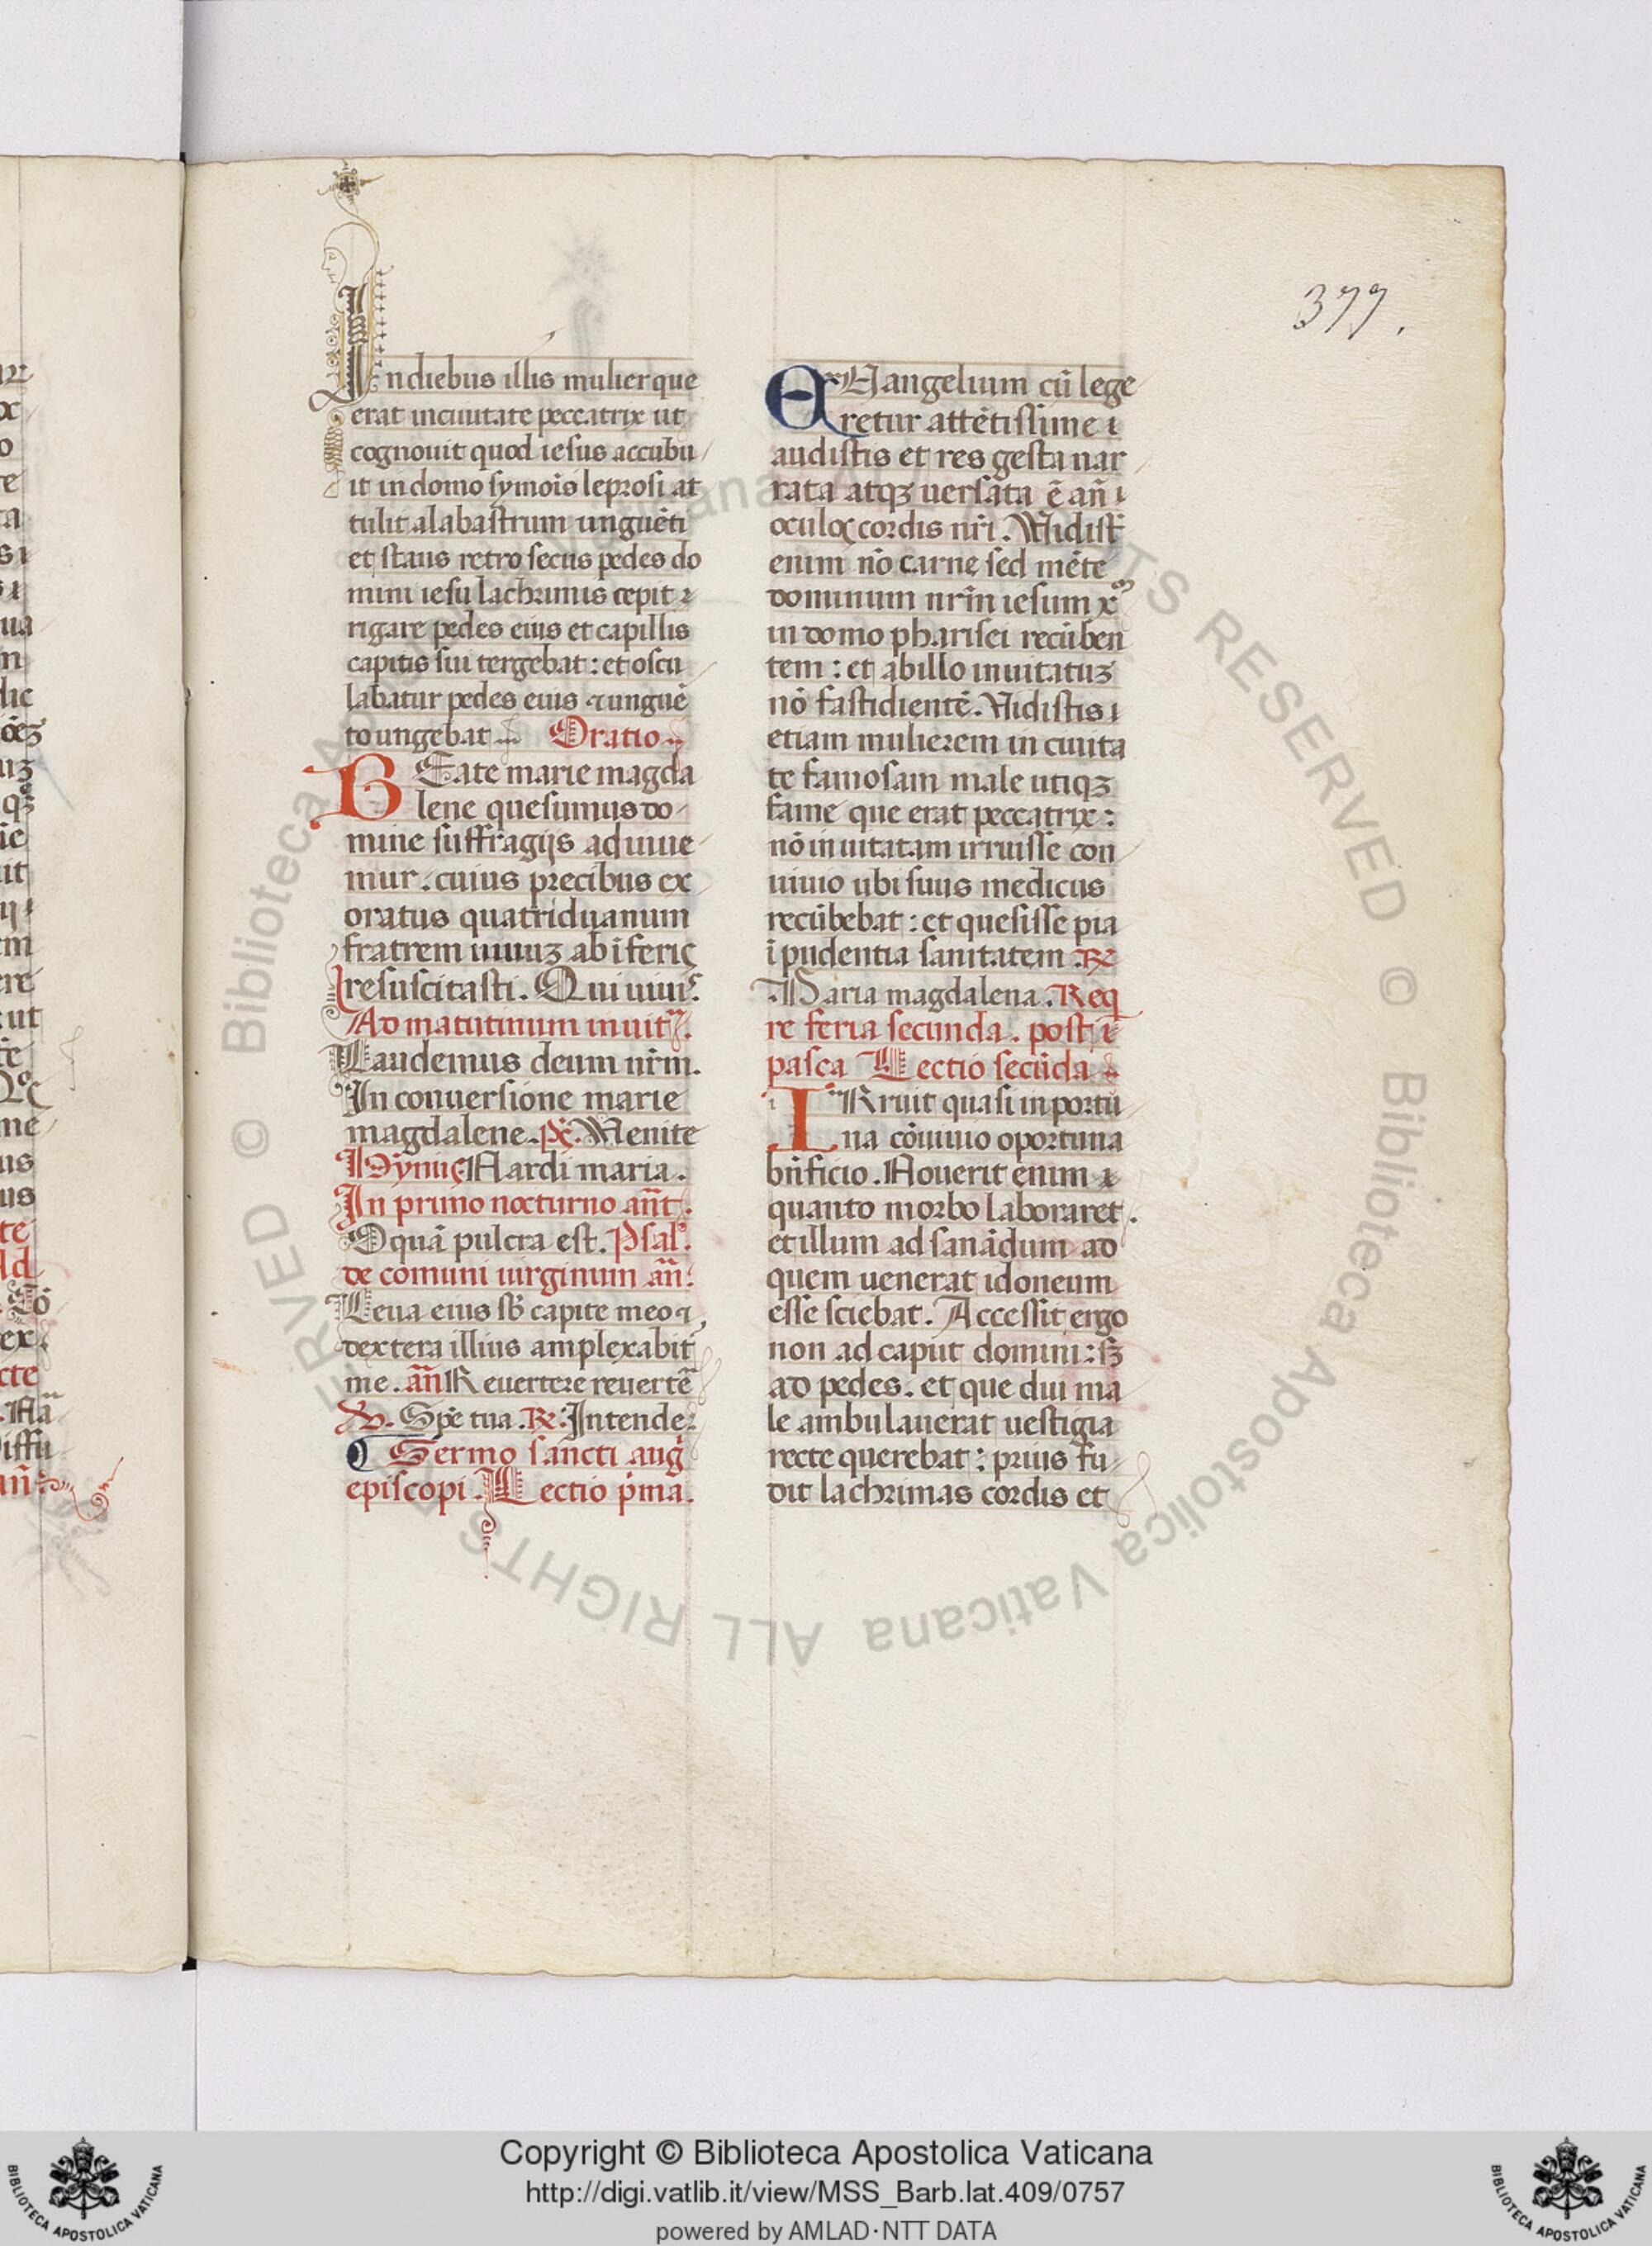 377.
In diebus illis mulier que
erat inciuitate peccatrix ut
cognouit quod iesus accubu
it in domo symoīs leprosi at
tulit alabastrum unguēti
et stans retro secus pedes do
mini iesu lachrimis cepit
rigare pedes eius et capillis
capitis sui tergebat : et oscu
labatur pedes eius ⁊ unguē
to ungebat Oratio
BEate marie magda
lene quesumus do
mine suffragijs adiuue
mur . cuius precibus ex
oratus quatriduanum
fratrem uiuuꝫ ab īferiꝯ
resuscitasti . Qui uiuiſ.
Ad matutinum inuit̄.
Laudemus deum nr̄m.
In conuersione marie
magdalene . p̄s. Venite
Hymꝯ Nardi maria .
In primo nocturno an̄t .
O quā pulcra est . Psal.
de comuni uirginum an̄.
Leua eius sb̄ capite meo ⁊
dextera illius amplexabit̄
me . an̄ Reuertere reuertē
℣. Spē tua . ℞. Intende
¶ Sermo sancti auḡ
episcopi . Lectio p̄ma .
EXUangelium cū lege
retur attētissime
audistis et res gesta nar
rata atqꝫ uersata ē an̄
oculoꝝ cordis nr̄i . Vidist̄
enim nō carne sed mēte
dominum nrm̄ iesum x̄
in domo pharisei recūben
tem : et ab illo inuitatuꝫ
nō fastidientē . Vidistis
etiam mulierem in ciuita
te famosam male utiqꝫ
fame que erat peccatrix :
nō inuitatam irruisse con
uiuio ubi suus medicus
recūbebat : et quesisse pia
īpudentia sanitatem . ℞
Maria magdalena . Req
re feria secunda . post
pasca Lectio secūda
IRruit quasi inportu
na cōuiuio oportuna
bn̄ficio . Nouerit enim
quanto morbo laboraret .
et illum ad sanādum ad
quem uenerat idoneum
esse sciebat . Accessit ergo
non ad caput domini : sꝫ
ad pedes . et que diu ma
le ambulauerat uestigia
recte querebat : prius fu
dit lachrimas cordis et
Copyright © Biblioteca Apostolica Vaticana
http://digi.vatlib.it/view/MSS_Barb.lat.409/0757
powered by AMLAD·NTT DATA